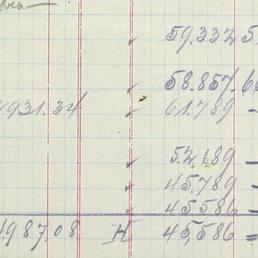 59.332 5
✓ 58.857.6
931.34 ✓ 61.789 —
✓ 52.689 —
✓ 45.789 —
✓ 45.586 —
1.987.08 H 45,586 =